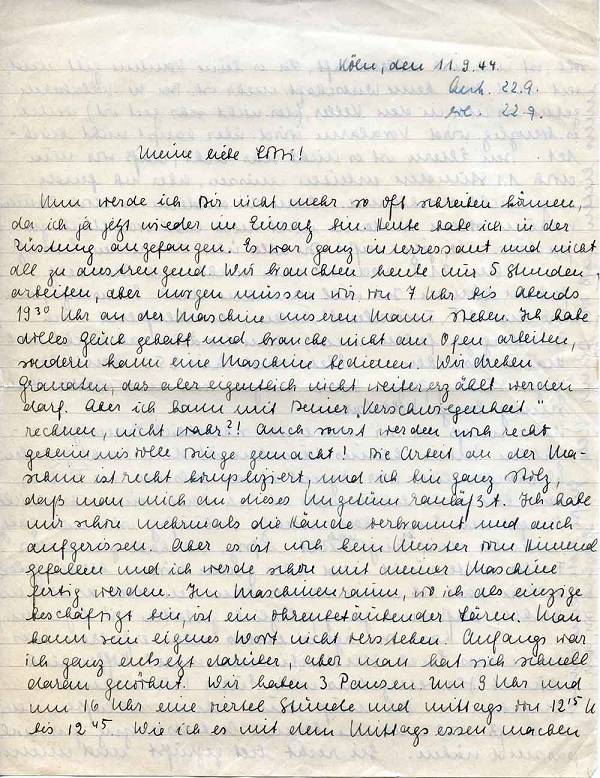 Köln, den 11.9.44
22.9.
22.9.
Meine liebe Lotti!
Nun werde ich Dir nicht mehr so oft schreiben können,
da ich ja jetzt wieder im Einsatz bin. Heute habe ich in der
Rüstung angefangen. Es war ganz interressant und nicht
all zu anstrengend. Wir brauchten heute nur 5 Stunden
arbeiten, aber morgen müssen wir von 7 Uhr bis abends
19³⁰ Uhr an der Maschine unseren Mann stehen. Ich habe
dolles Glück gehabt und brauche nicht am Ofen arbeiten,
sondern kann eine Maschine bedienen. Wir drehen
Granaten, das aber eigentlich nicht weitererzählt werden
darf. Aber ich kann mit Deiner „Verschwiegenheit"
rechnen, nicht wahr?! Auch sonst werden noch recht
geheimnisvolle Dinge gemacht! Die Arbeit an der Ma-
schine ist recht kompliziert, und ich bin ganz stolz,
daß man mich an dieses Ungetüm ranläßt. Ich habe
mir schon mehrmals die Hände verbrannt und auch
aufgerissen. Aber es ist noch kein Meister vom Himmel
gefallen und ich werde schon mit meiner Maschine
fertig werden. Im Maschinenraum, wo ich als einzige
beschäftigt bin, ist ein ohrenbetäubender Lärm. Man
kann sein eigenes Wort nicht verstehen. Anfangs war
ich ganz entsetzt darüber, aber man hat sich schnell
daran gewöhnt. Wir haben 3 Pausen. Um 9 Uhr und
um 16 Uhr eine viertel Stunde und mittags von 12¹⁵ U
bis 12⁴⁵. Wie ich es mit dem Mittagessen machen